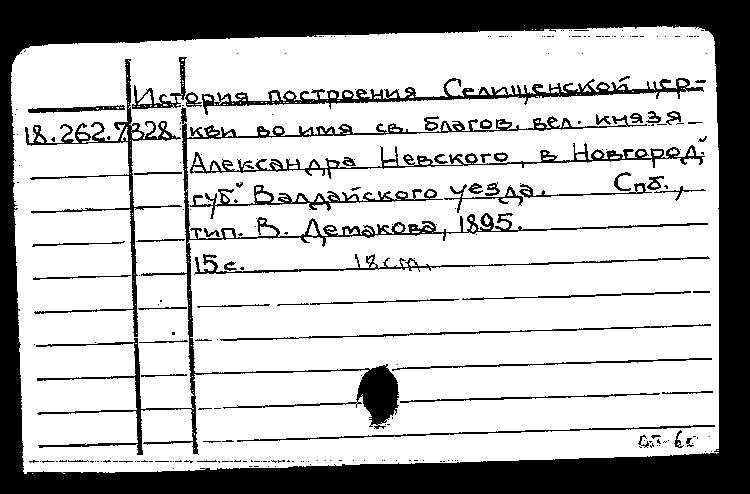 История построения Селищенской цер-
18.262.7.328. кви во имя св. благов. вел. князя
Александра Невского, в Новгород.
губ. Валдайского уезда. Спб.,
тип. В. Демакова, 1895.
15 с. 18 cm.